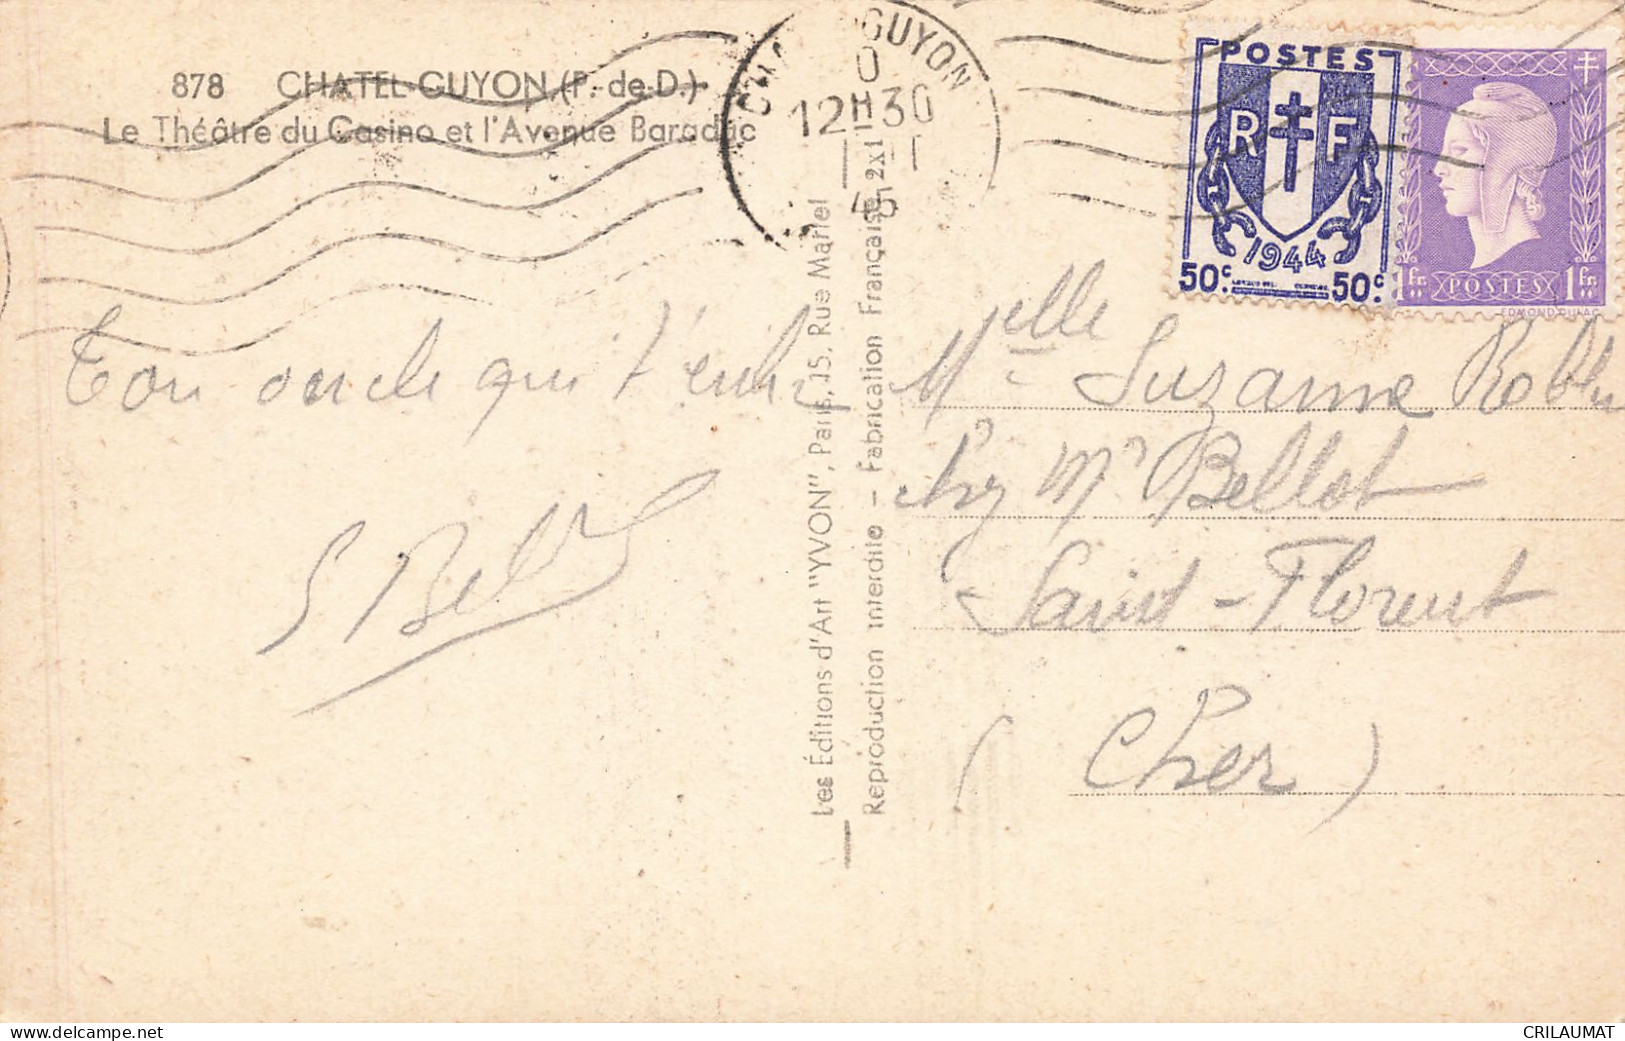 878 CHATEL-GUYON (P.-de-D.)
Le Théâtre du Casino et l'Avenue Baraduc
GUYON
12H30
POSTES
R F
1944
50c. 50c.
1fr. POSTES 1fr.
EDMOND DULAC
Ton oncle qui t'
Les Éditions d'Art "YVON", Paris, 15, Rue Martel
Reproduction interdite - Fabrication Française 2x1
Melle Suzanne
chez Mr Bellot
Saint-Florent
(Cher)
delcampe.net
CRILAUMAT